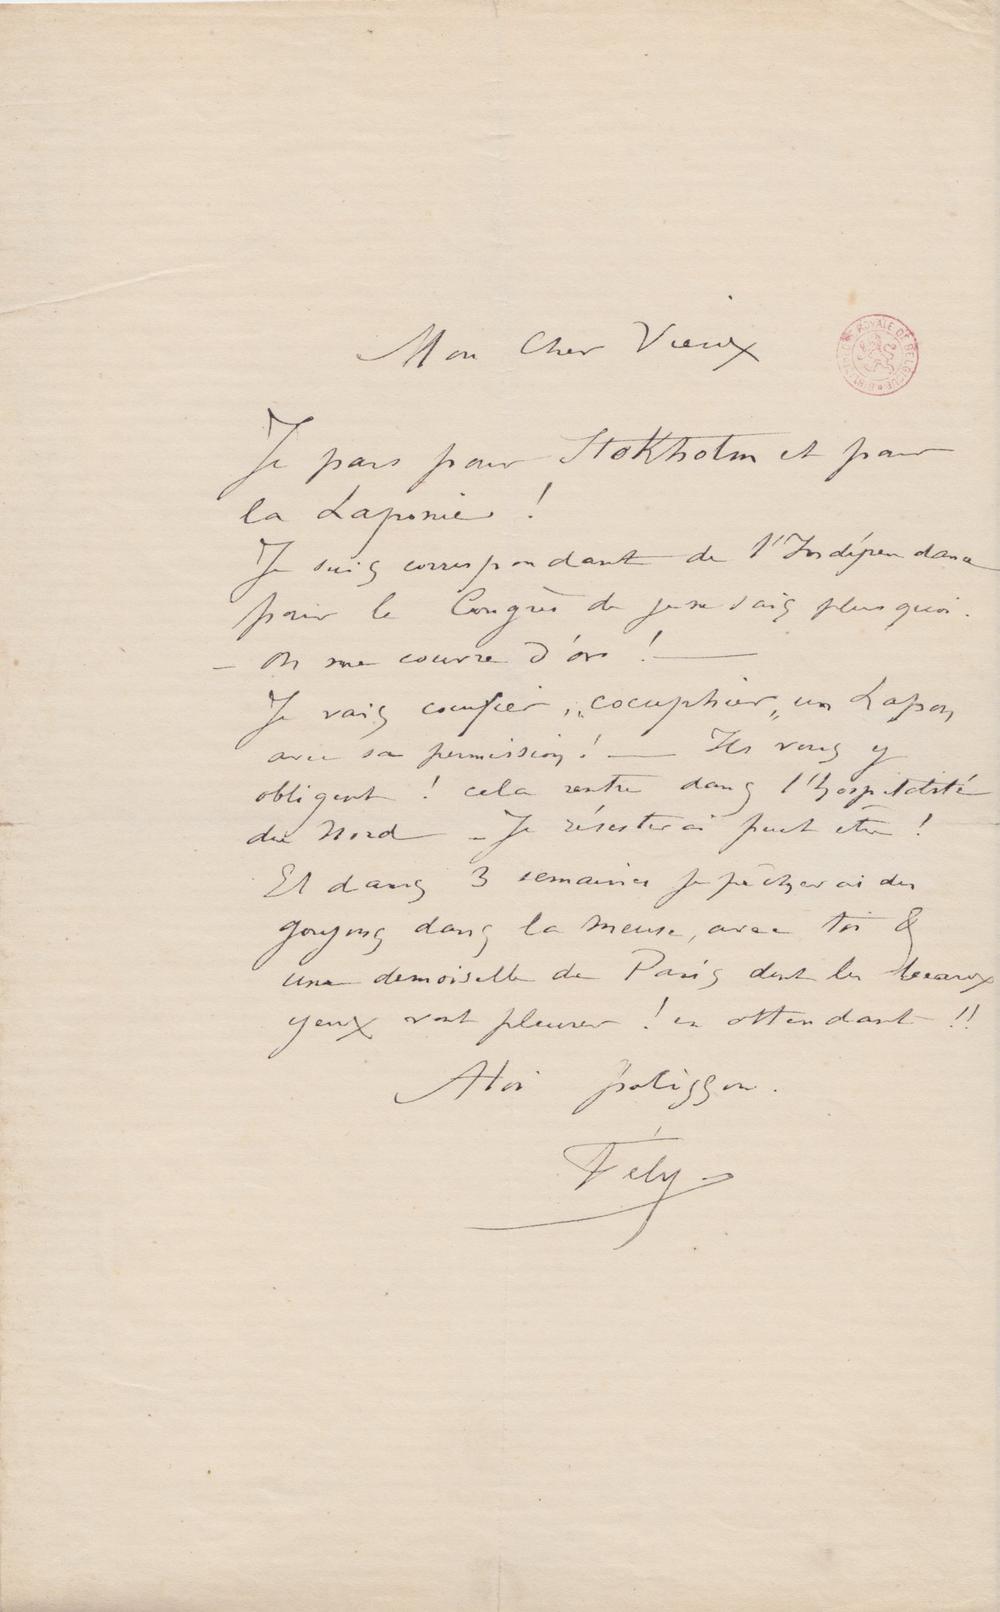 Mon Cher Vieux
ROYALE DE BELGIQUE
Je pars pour Stokholm et pour
la Laponie !
Je suis correspondant de l'Indépendance
pour le Congrès de je ne sais plus quoi.
— On me couvre d'or ! —
Je vais cocufier, „cocuphier„ un Lapon,
avec sa permission ! — Ils vous y
obligent ! cela rentre dans l'hospitalité
du Nord — Je résisterai peut être !
Et dans 3 semaines je pêcherai des
goujons dans la Meuse, avec toi &
une demoiselle de Paris dont les beaux
yeux vont pleurer ! en attendant !!
A toi polisson.
Fély